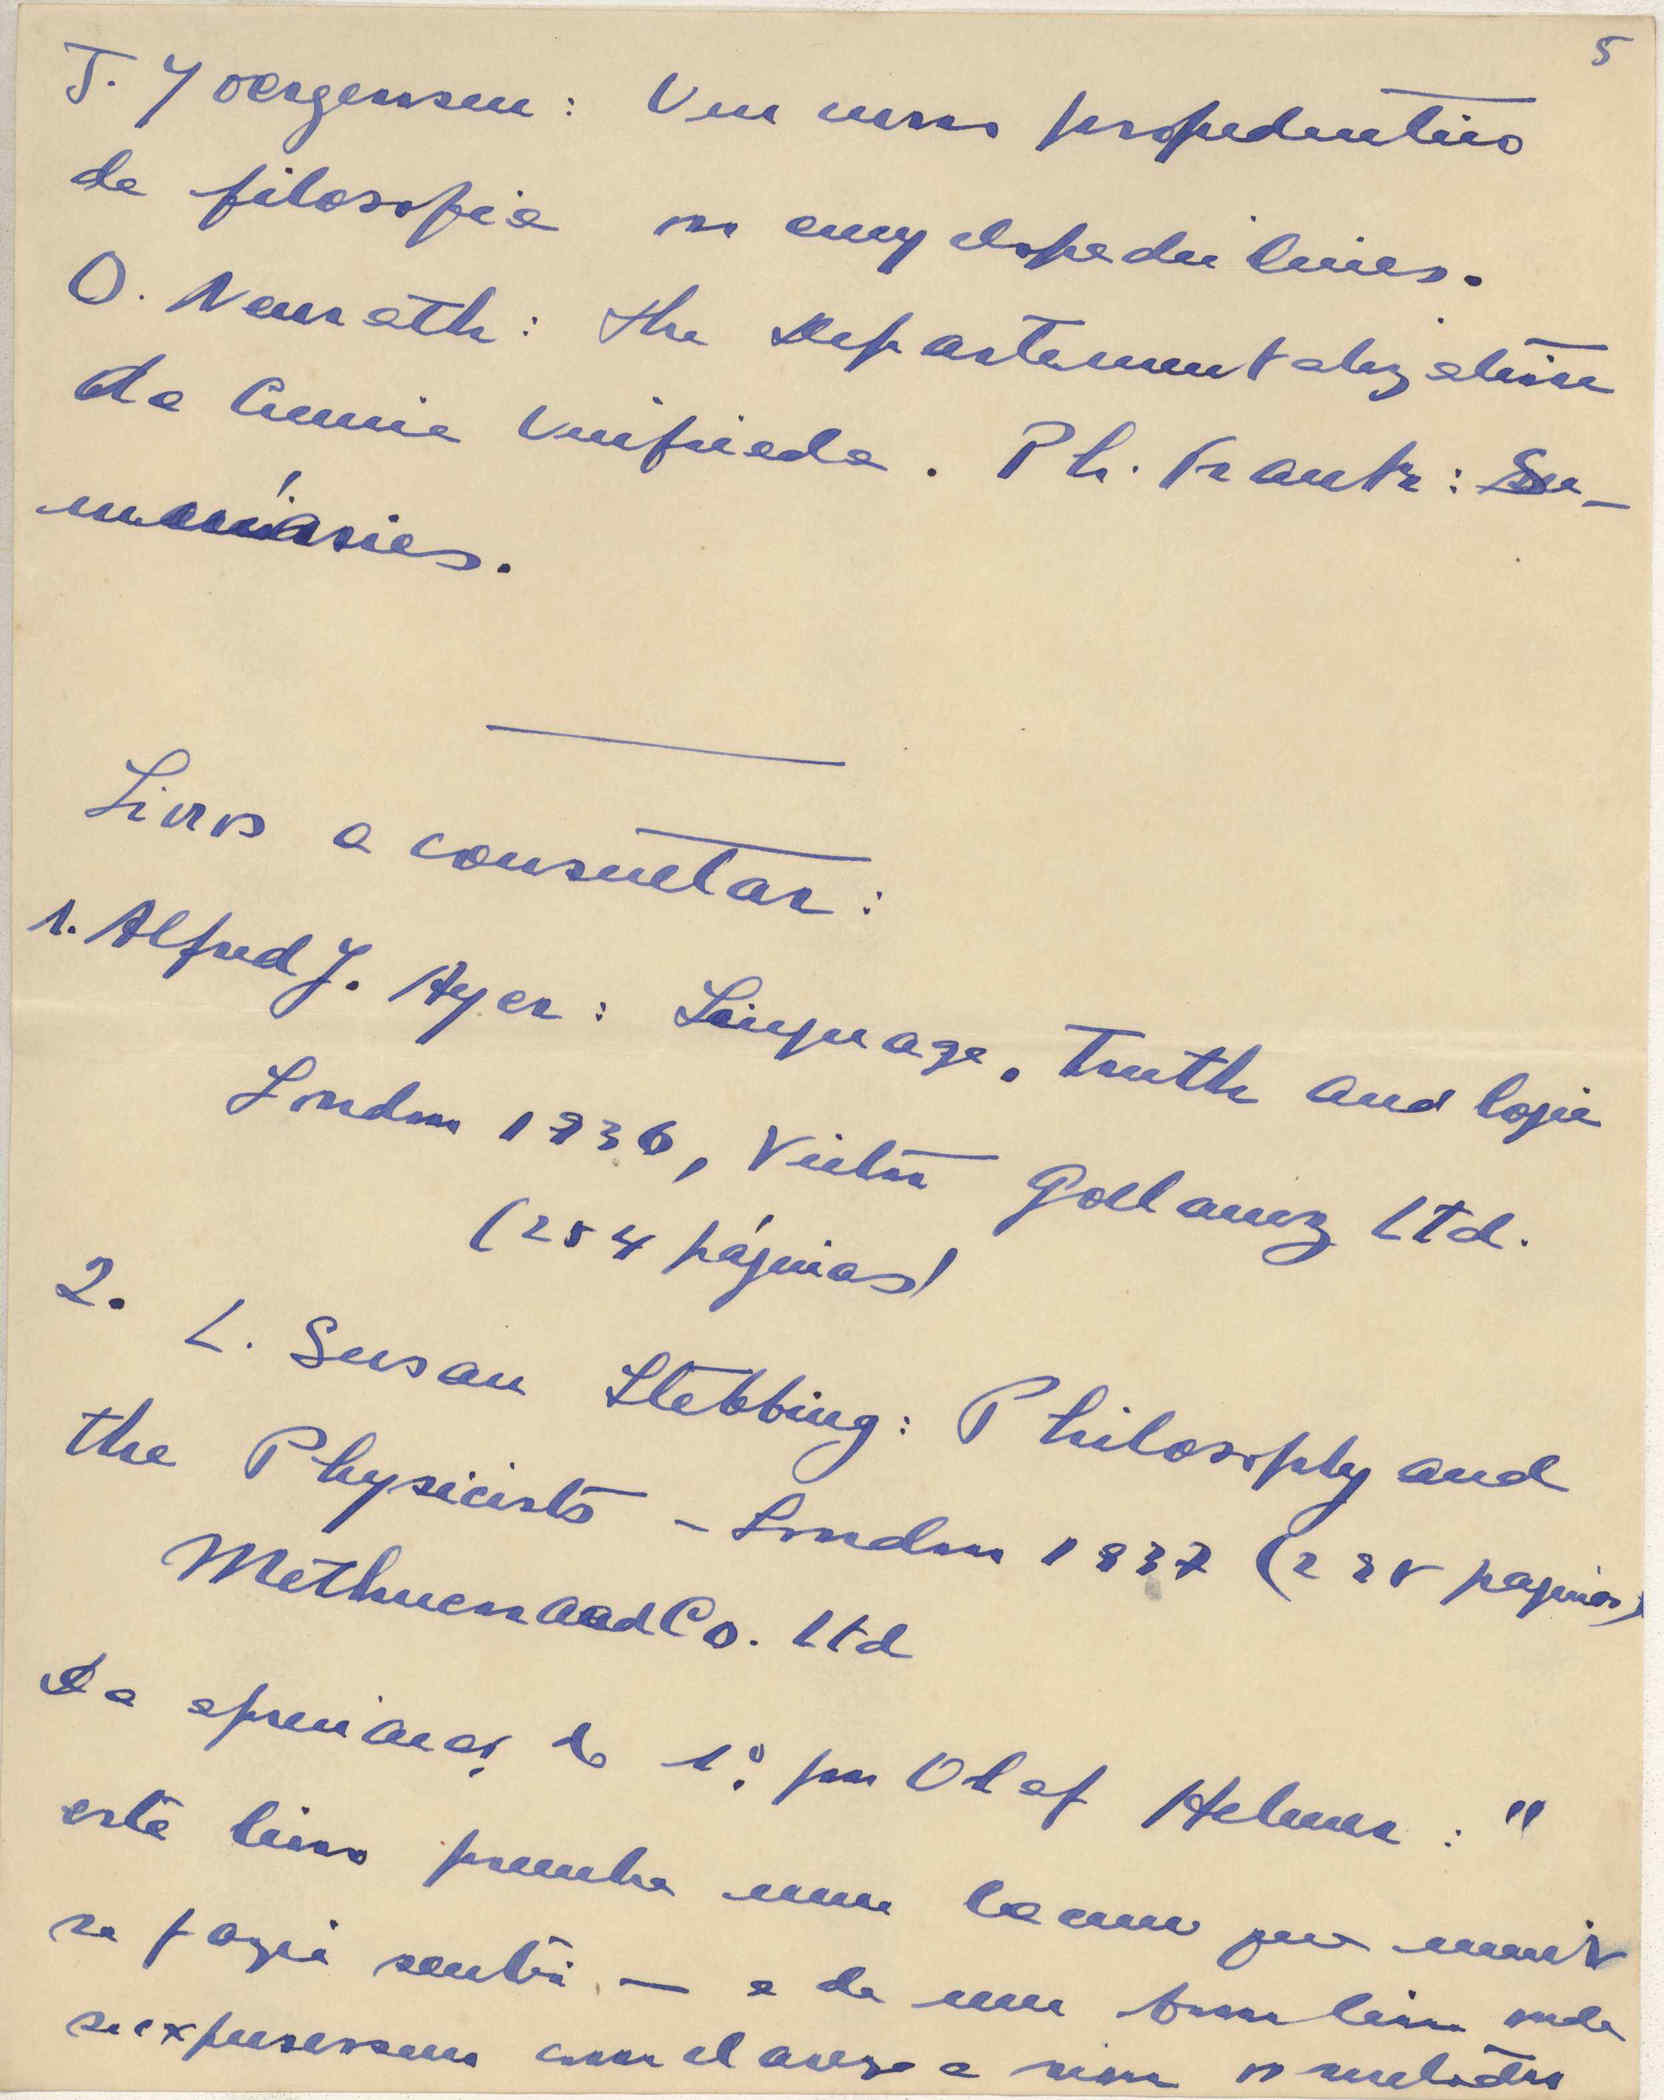 5
J. Joergensen: Um curso propedeutico
de filosofia em encyclopedia lines.
O. Neurath: the Departementalization
da Ciencia Unificada. Ph. Frank: Su-
márias.
Livros a consultar:
1. Alfred J. Ayer: Language, Truth and logic
London 1936, Victor Gollancz Ltd.
(254 páginas)
2.
L. Susan Stebbing: Philosophy and
the Physicists - London 1937 (295 paginas)
Methuen and Co. Ltd
Da apreciação do 1º por Olaf Helmer: "
este livro preenche uma lacuna que muito
se fazia sentir — a de um bom livro onde
se expusessem com clareza e rigor os metodos